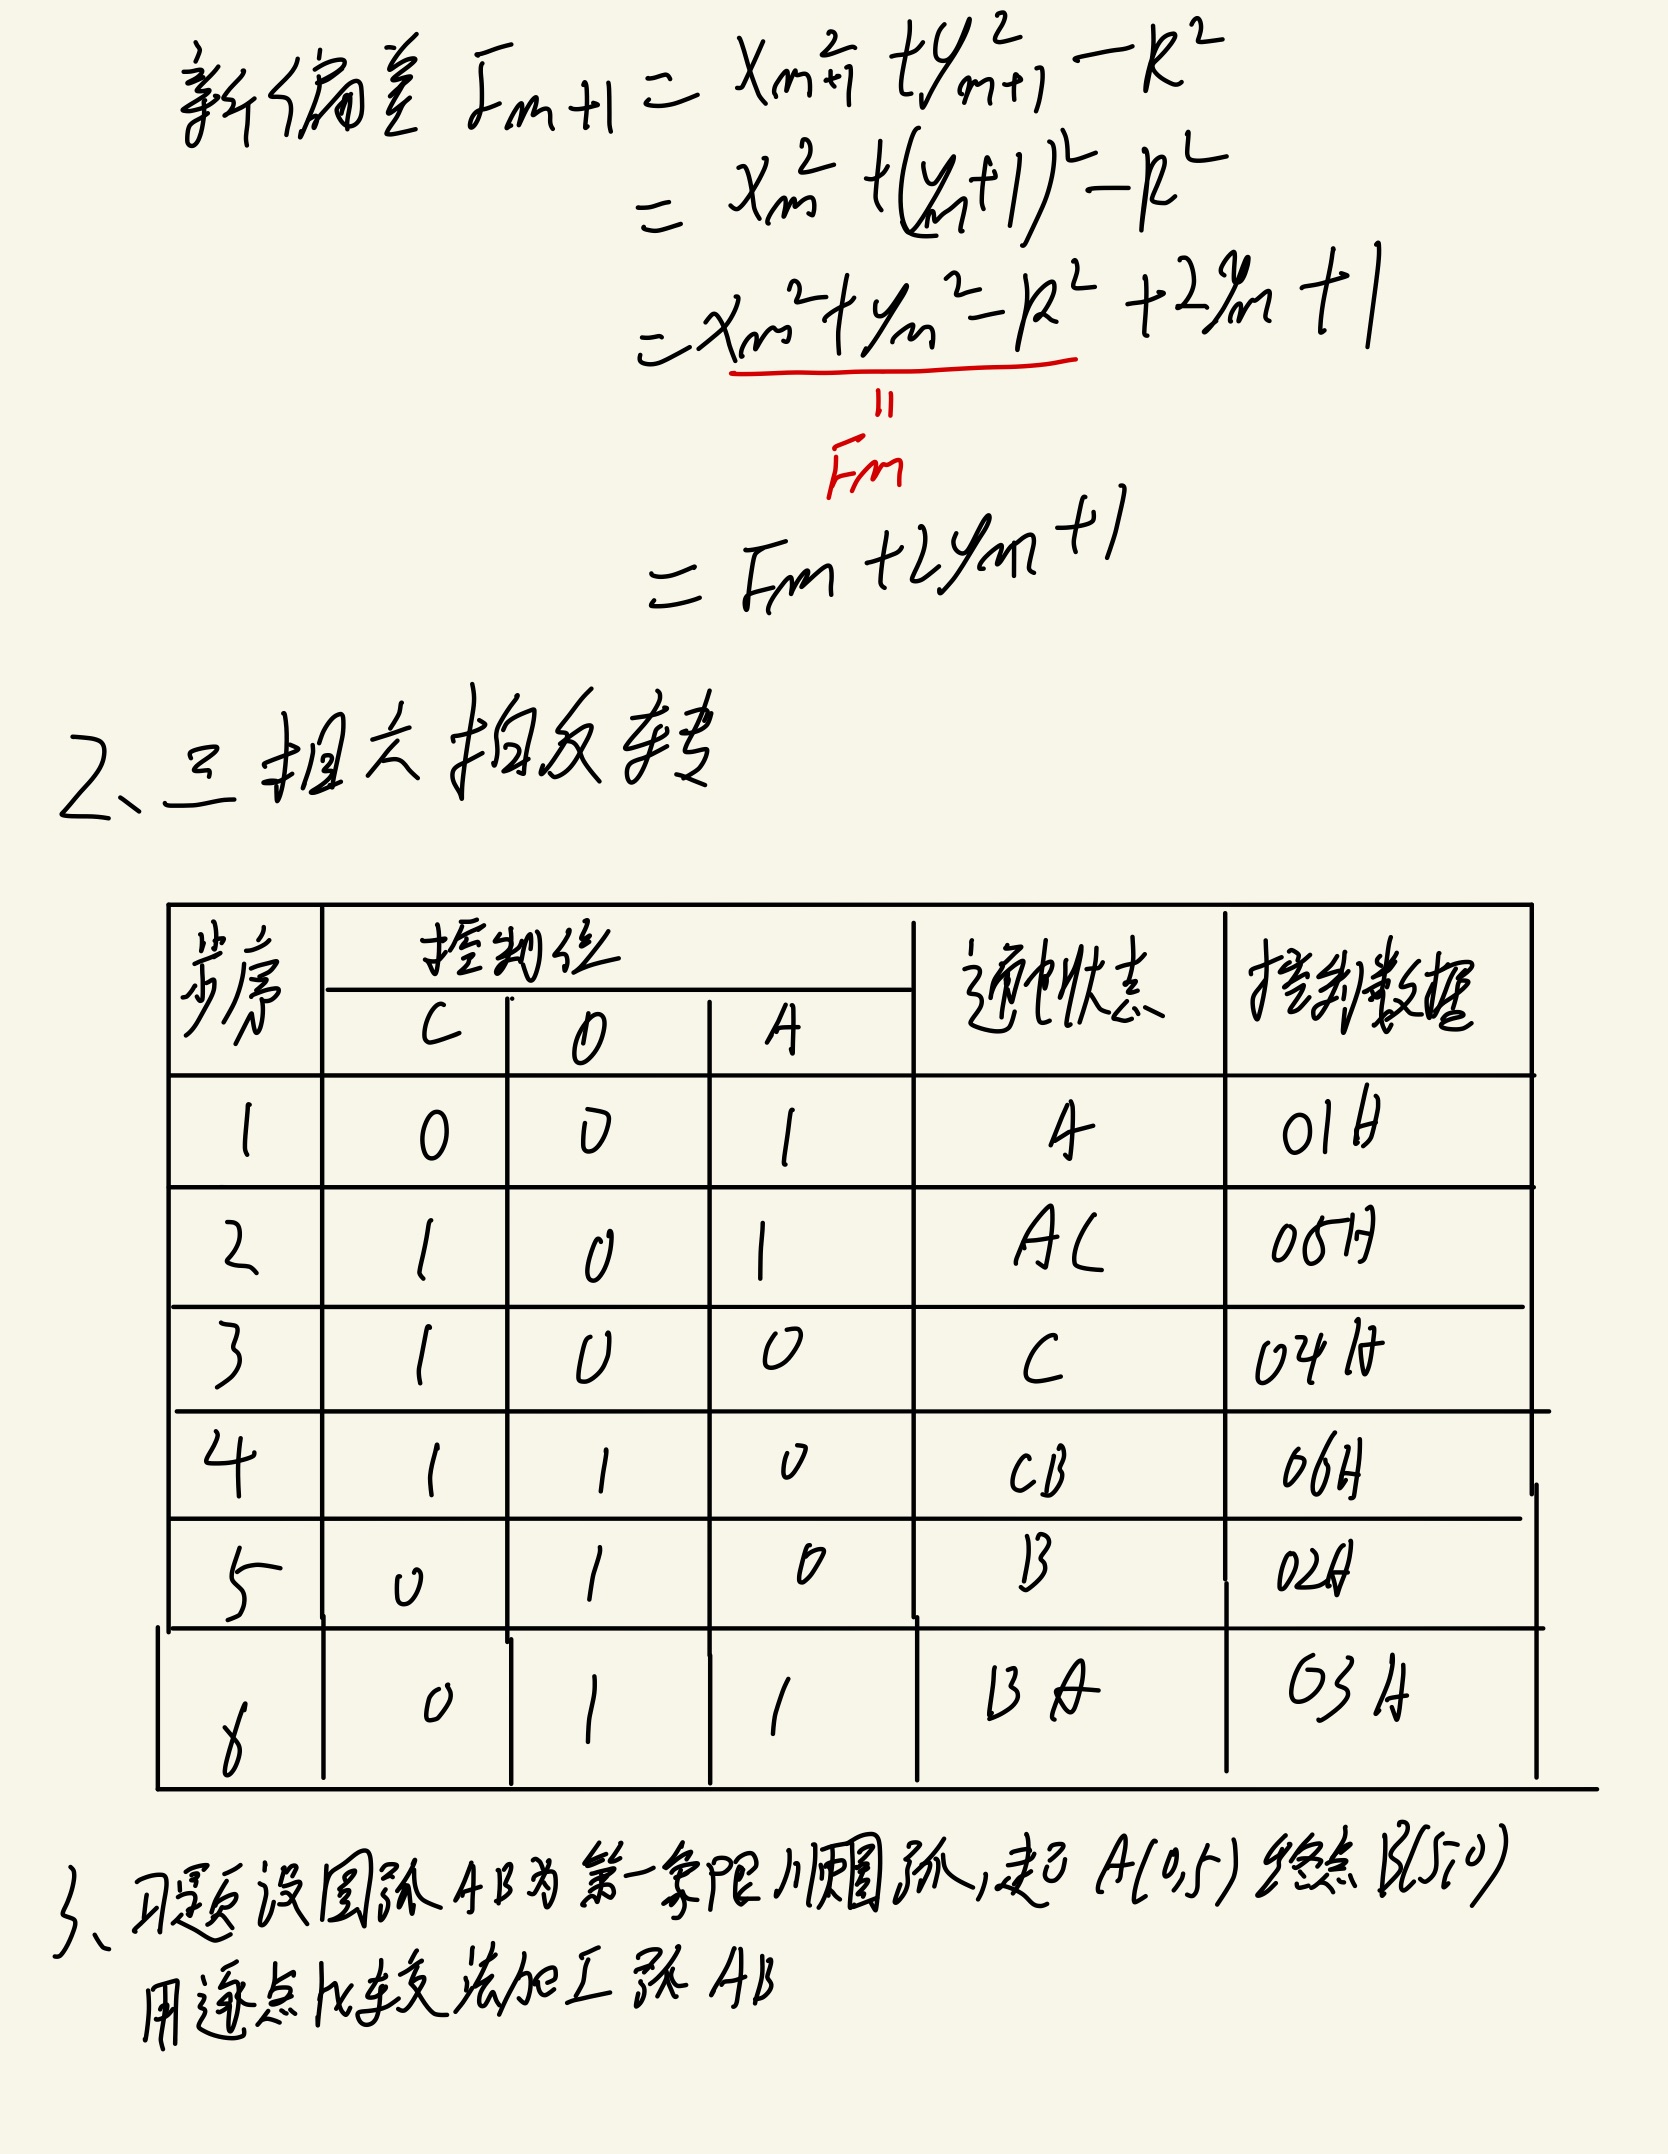 新偏差 Fm+1 = Xm+1² + ym+1² - R²
= Xm² + (ym+1)² - R²
= Xm² + ym² - R² + 2ym + 1
=
Fm
= Fm + 2ym + 1
2、三相六拍反转
步序 控制位 通电状态 控制数据
C 0 A
1 0 0 1 A 01H
2 1 0 1 AC 05H
3 1 0 0 C 04H
4 1 1 0 CB 06H
5 0 1 0 B 02H
6 0 1 1 BA 03H
3、习题设圆弧AB为第一象限顺圆弧,起 A(0,5) 终点 B(5,0)
用逐点比较法加工弧AB